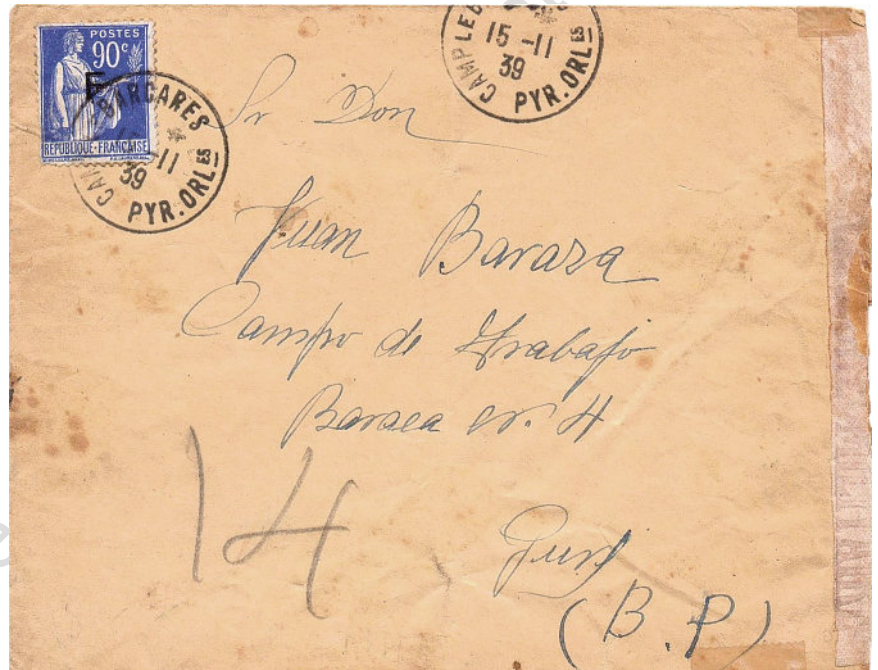 POSTES
90c
F
RÉPUBLIQUE-FRANÇAISE
BARCARES
11
39
PYR. ORLES
CAMP LE B
15 -11
39
PYR. ORLES
Sr Don
Juan Baraza
Campo de Trabajo
Baraca nr. 4
14
Gurs
(B. P)